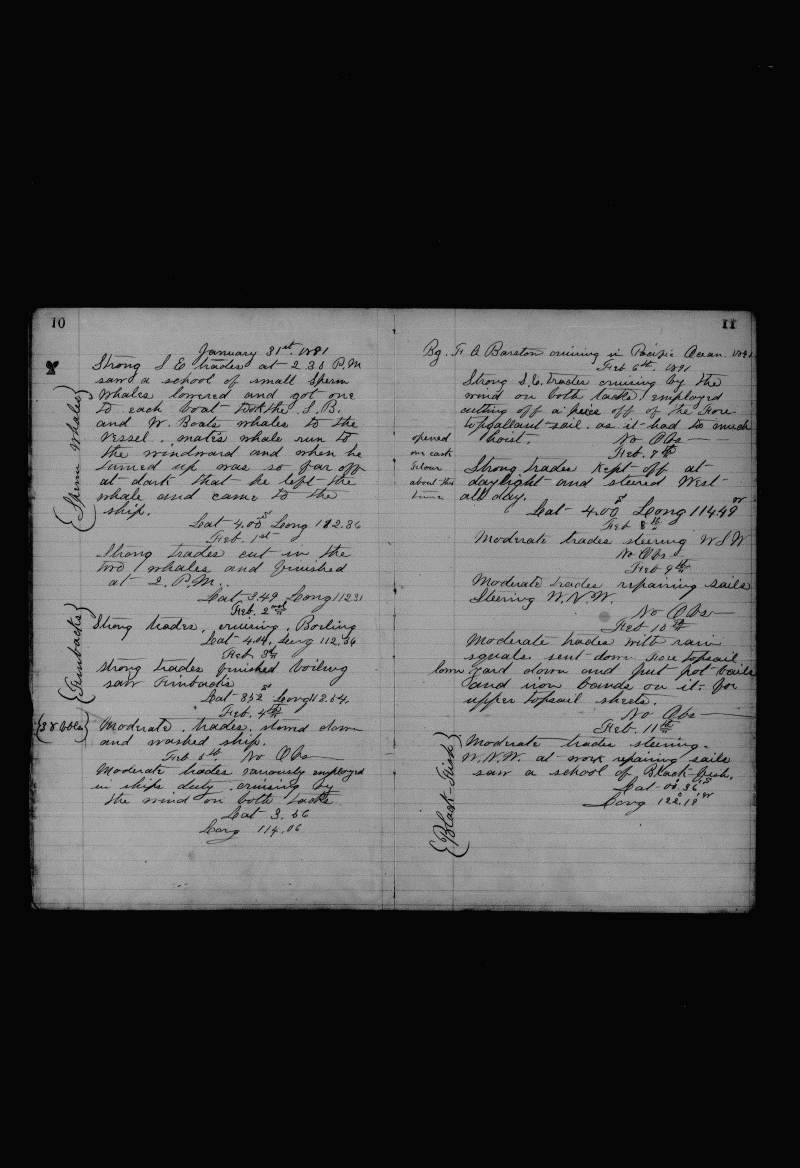 10
January 31st. 1891
Strong S E trades at 2.30 P.M
saw a school of small Sperm
Whales lowered and got one
to each boat took the S.B.
and W. Boats whales to the
vessel. mates whale run to
the windward and when he
turned up was so far off
at dark that he left the
whale and came to the
ship.
{Sperm Whales}
Lat 4.00 S Long 112.36
Feb. 1st
Strong trades cut in the
two whales and finished
at 2. P.M.
Lat 3.49 Long 112 31
Feb. 2nd
Strong trades. cruising. Boiling
Lat 4.04. Long 112.56
Feb 3d
Strong trades finished boiling
saw Finbacks
{Finbacks}
Lat 3 52 S Long
Feb. 4th
{38 bbls}
Moderate trades. stowed down
and washed ship.
Feb 5th No Obs
Moderate trades variously employed
in ships duty. cruising by
the wind on both tacks
Lat 3.56
Long 114.06
11
Bg. F. A Barstow cruising in Pacific Ocean. 1891
Feb 6th. 1891
Strong S.E. trades cruising by the
wind on both tacks. employed
cutting off a piece off of the Fore
topgallant sail. as it had to much
hoist. No Obs
opened
our cask
flour
about this
time
Feb. 7th
Strong trades Kept off at
daylight and steered West
all day.
Lat 4.00 S Long 114.49 W
Feb 8th
Moderate trades steering W S W
No Obs
Feb 9th
Moderate trades repairing sails
Steering W.N.W.
No Obs
Feb 10th
Moderate trades with rain
squals. sent down Fore topsail
lower yard down and put pot bails
and iron bands on it for
upper topsail sheets.
No Obs
Feb. 11th
Moderate trades steering.
W.N.W. at work repairing sails
saw a school of Black-fish.
{Black-Fish}
Lat 03.36 S
Long 122.19 W